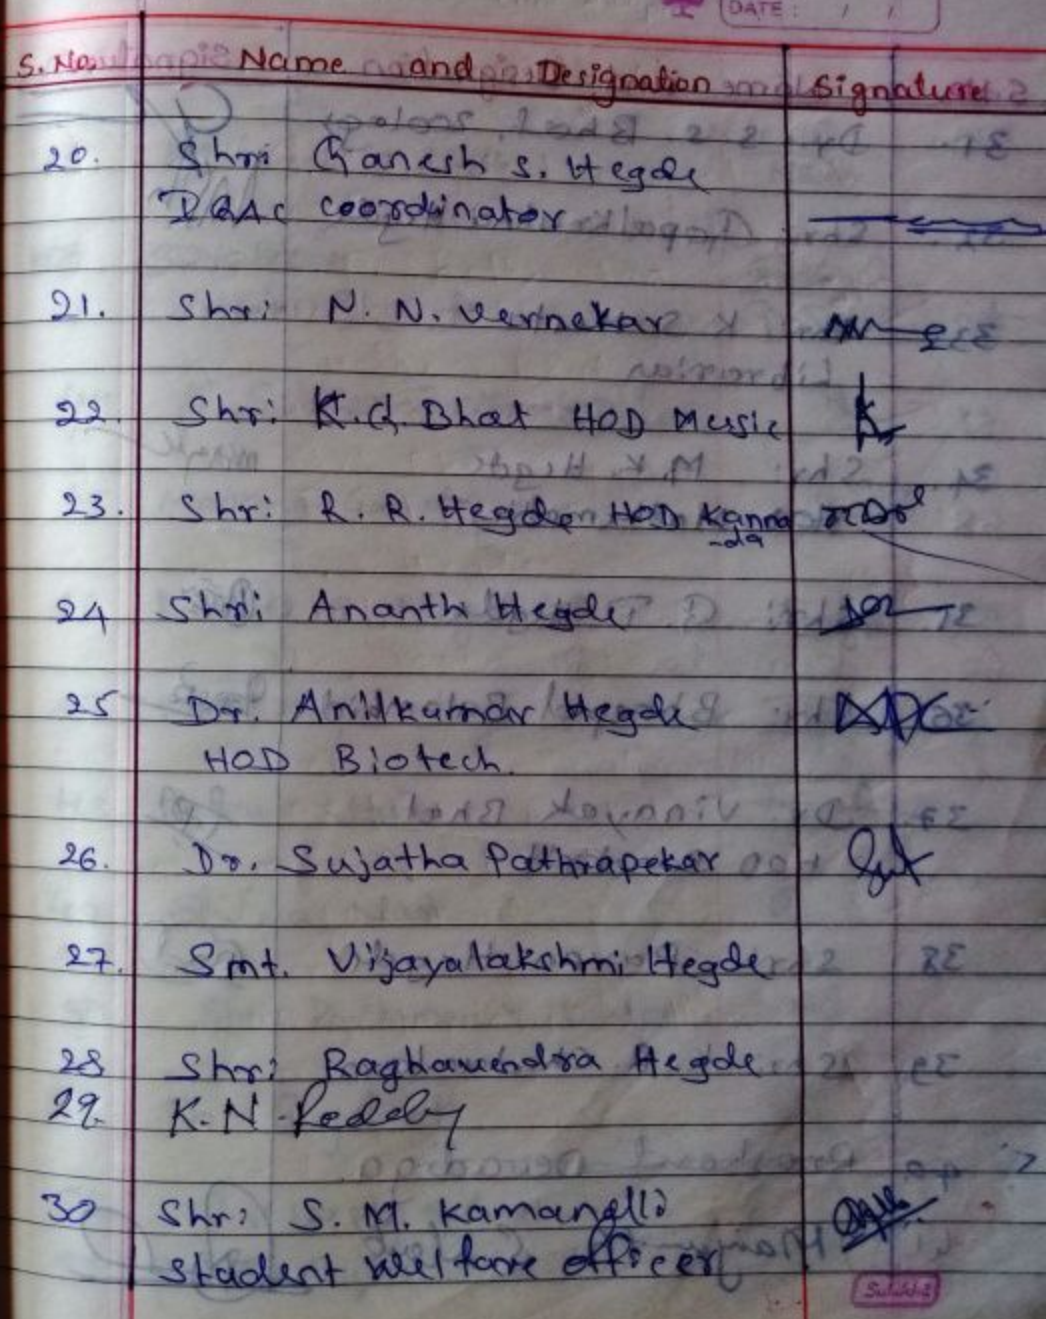 DATE : / /
S. No. Name and Designation Signature
20. Shri Ganesh S. Hegde
IQAC coordinator
21. Shri N. N. Vernekar
22. Shri K.G. Bhat HOD Music
23. Shri R. R. Hegde HOD Kanna
-da
24 Shri Ananth Hegde
25 Dr. Anilkumar Hegde
HOD Biotech.
26. Dr. Sujatha Pathrapekar
27. Smt. Vijayalakshmi Hegde
28 Shri Raghavendra Hegde
29. K.N. Reddy
30 Shri S. M. Kamanalli
Student welfare officer